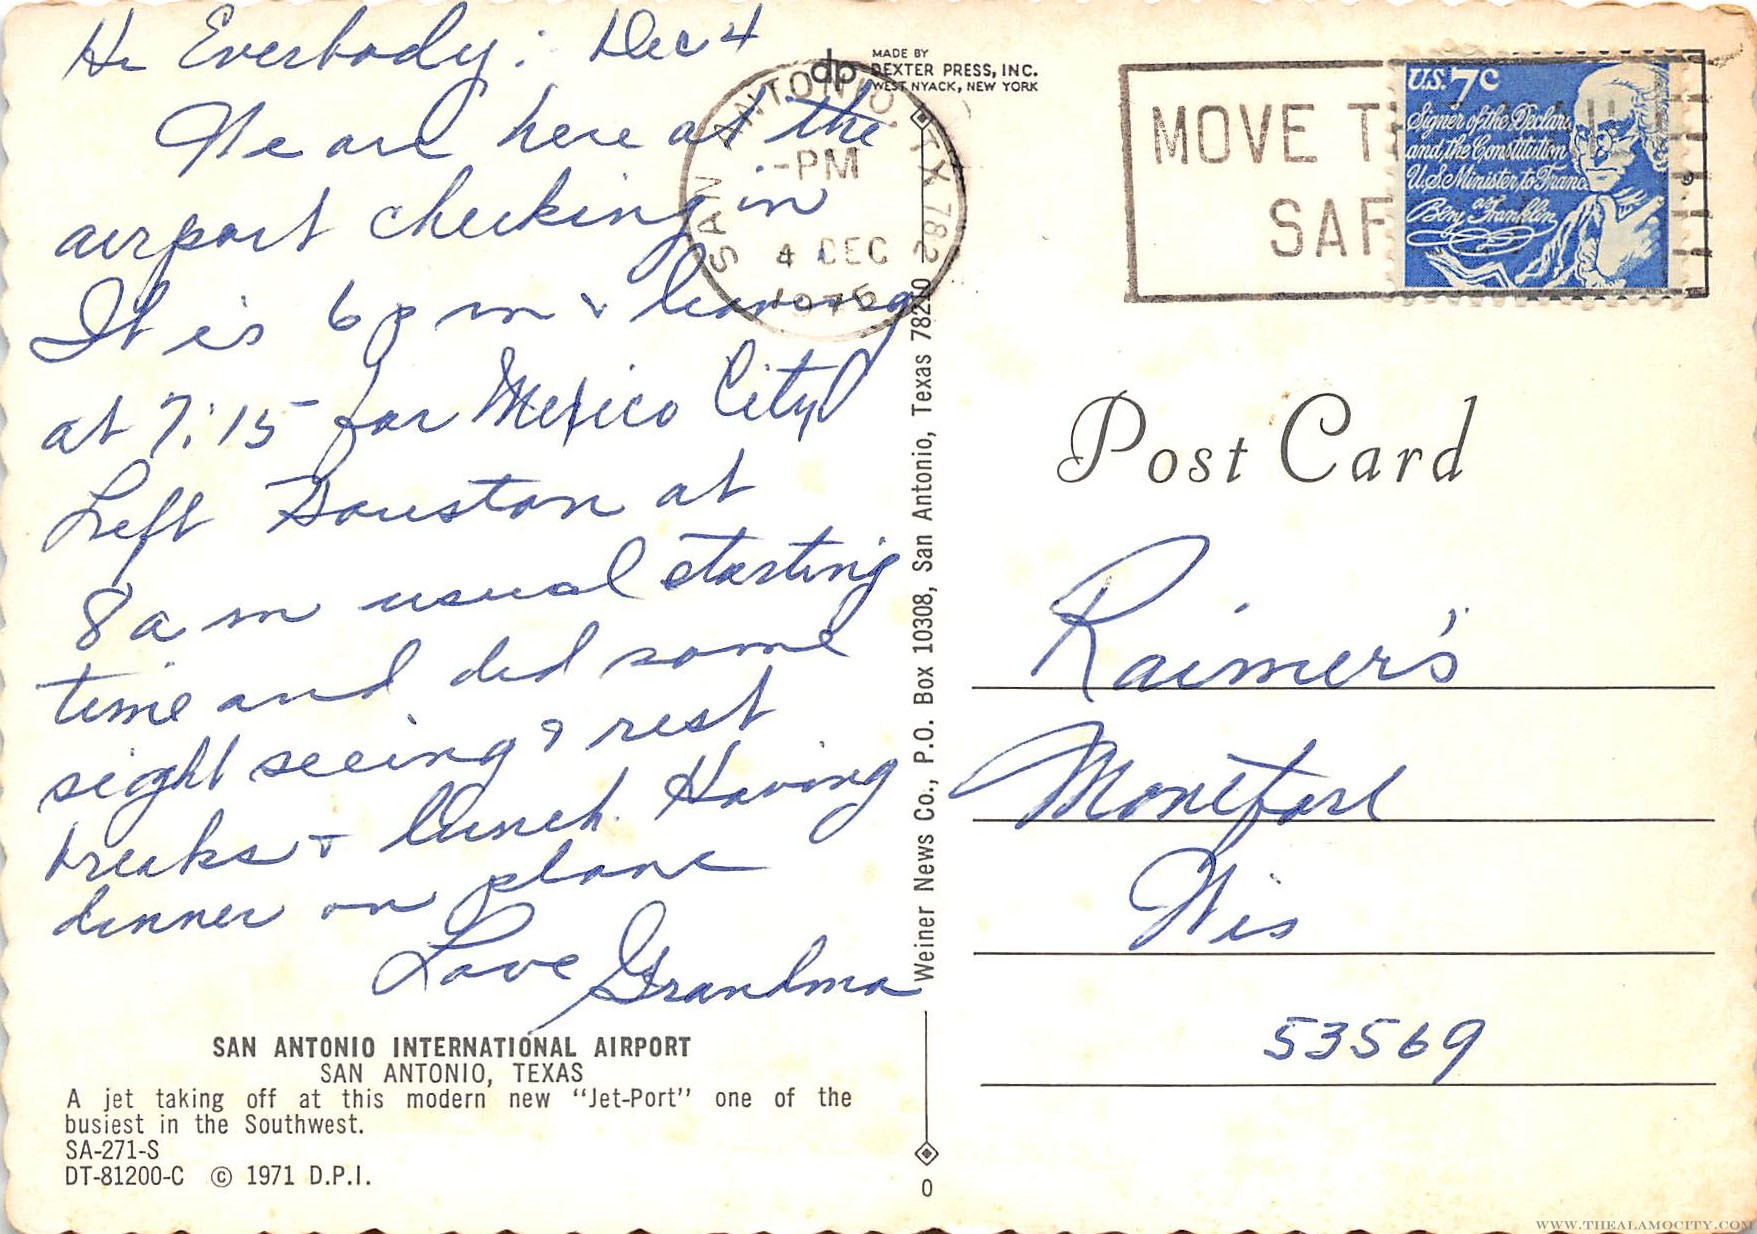 Hi Everbody: Dec 4
We are here at the
airport checking in
It is 6 p m & leaving
at 7:15 for Mexico City
Left Houston at
8 a m usual starting
time and did some
sight seeing & rest
breaks & lunch. Having
dinner on plane
Love Grandma
SAN ANTONIO INTERNATIONAL AIRPORT
SAN ANTONIO, TEXAS
A jet taking off at this modern new “Jet-Port” one of the
busiest in the Southwest.
SA-271-S
DT-81200-C © 1971 D.P.I.
dp
MADE BY
DEXTER PRESS, INC.
WEST NYACK, NEW YORK
SAN ANTONIO, TX 782
PM
4 DEC
Weiner News Co., P.O. Box 10308, San Antonio, Texas 78210
0
MOVE
SAF
U.S. 7c
Signer of the Declara
and the Constitution
U.S. Minister to France
as
Benj Franklin
Post Card
Raimer's
Montfort
Wis
53569
WWW.THEALAMOCITY.COM